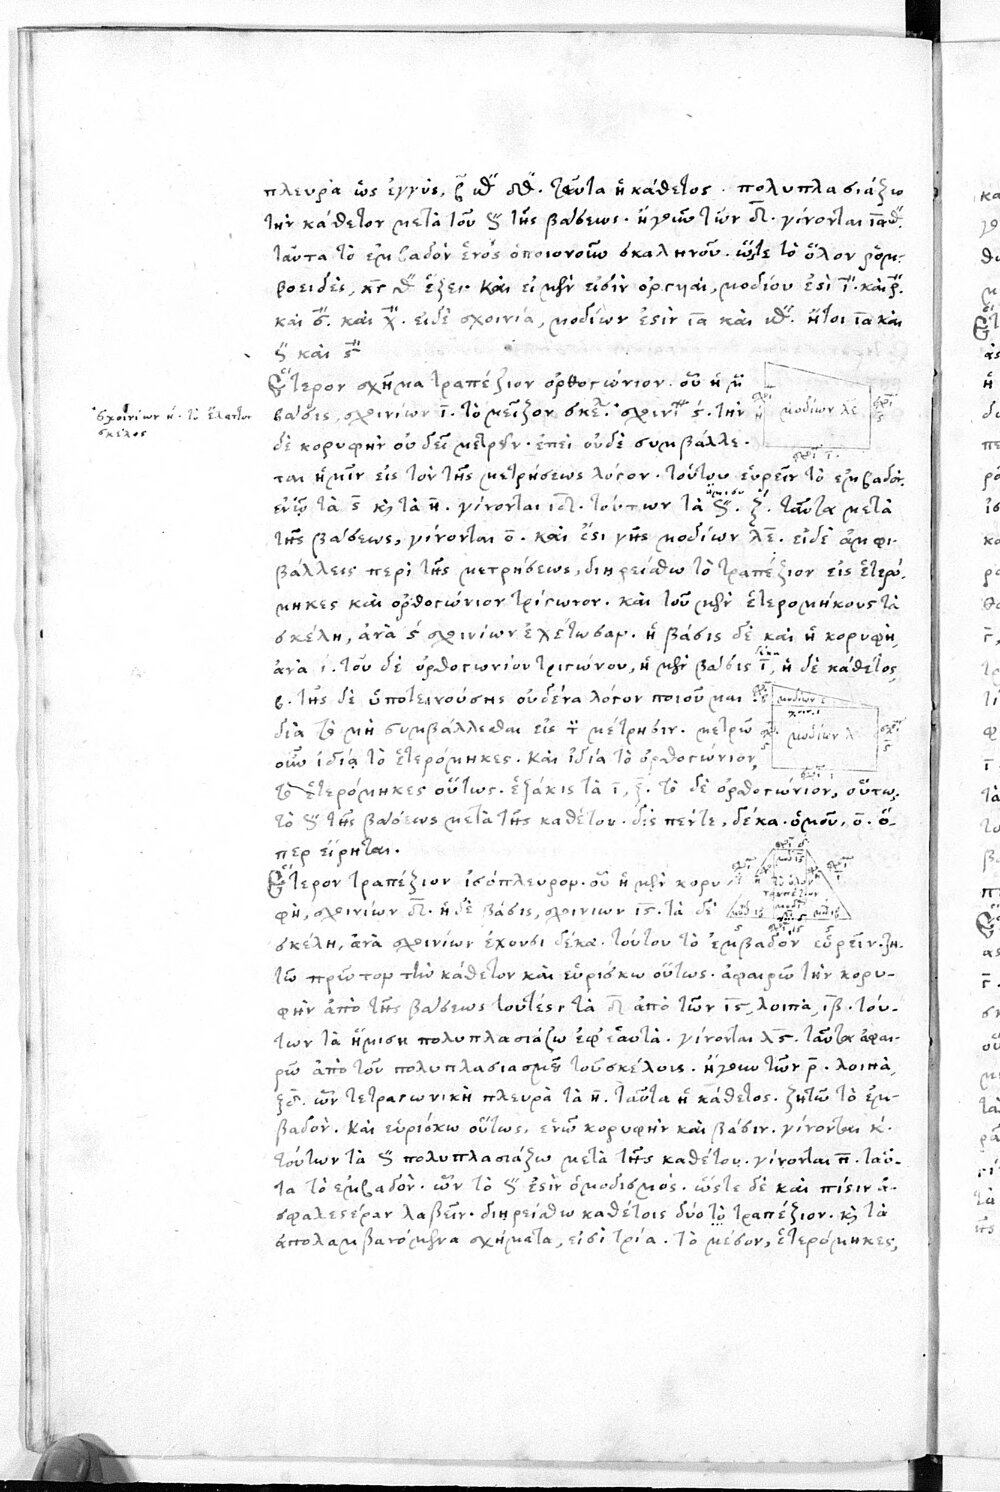 πλευρὰ ὡς ἐγγύς, ταῦτα ἡ κάθετος. πολυπλασιάζω
τὴν κάθετον μετὰ τοῦ 𐅵 τῆς βάσεως. ἤγουν τῶν δ̅. γίνονται
ταῦτα τὸ ἐμβαδὸν ἑνὸς ὁποιουοῦν σκαληνοῦ. ὥστε τὸ ὅλον ῥομ-
βοειδὲς, ἕξει. καὶ εἰ μὲν εἰσὶν ὀργυιαὶ, μοδίου ἐστὶ
καὶ. καὶ. εἰ δὲ σχοινία, μοδίων ἐστὶν ι̅α̅ καὶ. ἤτοι ι̅α̅ καὶ
𐅵 καὶ
Ἕτερον σχῆμα τραπέζιον ὀρθογώνιον. οὗ ἡ μὲν
βάσις, σχοινίων ι̅. τὸ μεῖζον σκέλος σχοινίων
σχοινίων η. τὸ ἔλαττον
σκέλος
ς̅. τὴν
μοδίων λε
δὲ κορυφὴν οὐ δεῖ μετρεῖν. ἐπεὶ οὐδὲ συμβάλλε-
ται ἡμῖν εἰς τὸν τῆς μετρήσεως λόγον. τούτου εὑρεῖν τὸ ἐμβαδόν.
ἑνῶ τὰ ς̅ κ τὰ η̅. γίνονται ι̅δ̅. τούτων τὰ 𐅵. ζ̅. ταῦτα μετὰ
ἥμισυ
τῆς βάσεως, γίνονται ο̅. καὶ ἔστι γῆς μοδίων λ̅ε̅. εἰ δὲ ἀμφι-
βάλλεις περὶ τῆς μετρήσεως, διῃρείσθω τὸ τραπέζιον εἰς ἑτερό-
μηκες καὶ ὀρθογώνιον τρίγωνον. καὶ τοῦ μὲν ἑτερομήκους τὰ
σκέλη, ἀνὰ ς̅ σχοινίων ἐχέτωσαν. ἡ βάσις δὲ καὶ ἡ κορυφὴ,
ἀνὰ ι̅. τοῦ δὲ ὀρθογωνίου τριγώνου, ἡ μὲν βάσις ι̅, ἡ δὲ κάθετος,
δέκα
β. τῆς δὲ ὑποτεινούσης οὐδένα λόγον ποιοῦμαι
μοδίων ε
διὰ τὸ μὴ συμβάλλεσθαι εἰς τὴν μέτρησιν. μετρῶ
μοδίων λ
οὖν ἰδίᾳ τὸ ἑτερόμηκες. καὶ ἰδίᾳ τὸ ὀρθογώνιον,
τὸ ἑτερόμηκες οὕτως. ἑξάκις τὰ ι̅, ξ̅. τὸ δὲ ὀρθογώνιον, οὕτω,
τὸ 𐅵 τῆς βάσεως μετὰ τῆς καθέτου. δὶς πέντε, δέκα. ὁμοῦ, ο̅. ὅ-
περ εἴρηται.
Ἕτερον τραπέζιον ἰσόπλευρον. οὗ ἡ μὲν κορυ-
φὴ, σχοινίων δ̅. ἡ δὲ βάσις, σχοινίων ι̅ς̅. τὰ δὲ
τὸ ὅλον
τραπέζιον
σκέλη, ἀνὰ σχοινίων ἔχουσι δέκα. τούτου τὸ ἐμβαδὸν εὑρεῖν. ζη-
τῶ πρῶτον τὴν κάθετον καὶ εὑρίσκω οὕτως. ἀφαιρῶ τὴν κορυ-
φὴν ἀπὸ τῆς βάσεως τουτέστι τὰ δ̅ ἀπὸ τῶν ι̅ς̅, λοιπὰ, ι̅β̅. τού-
των τὰ ἥμιση πολυπλασιάζω ἐφ' ἑαυτά. γίνονται λ̅ς̅. ταῦτα ἀφαι-
ρῶ ἀπὸ τοῦ πολυπλασιασμοῦ τοῦ σκέλους. ἤγουν τῶν ρ̅. λοιπὰ,
ξ̅δ̅. ὧν τετραγωνικὴ πλευρὰ τὰ η̅. ταῦτα ἡ κάθετος. ζητῶ τὸ ἐμ-
βαδὸν. καὶ εὑρίσκω οὕτως. ἑνῶ κορυφὴν καὶ βάσιν. γίνονται κ̅.
τούτων τὰ 𐅵 πολυπλασιάζω μετὰ τῆς καθέτου. γίνονται π̅. ταῦ-
τα τὸ ἐμβαδόν. ὧν τὸ 𐅵 ἐστὶν ὁ μοδισμός. ὥστε δὲ καὶ πίστιν ἀ-
σφαλεστέραν λαβεῖν. διῃρείσθω καθέτοις δύο τὸ τραπέζιον. κ τὰ
ἀπολαμβανόμενα σχήματα, εἰσὶ τρία. τὸ μέσον, ἑτερόμηκες,